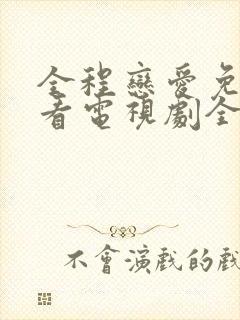 全程戀愛免
看電視劇全
不會演戲的戲